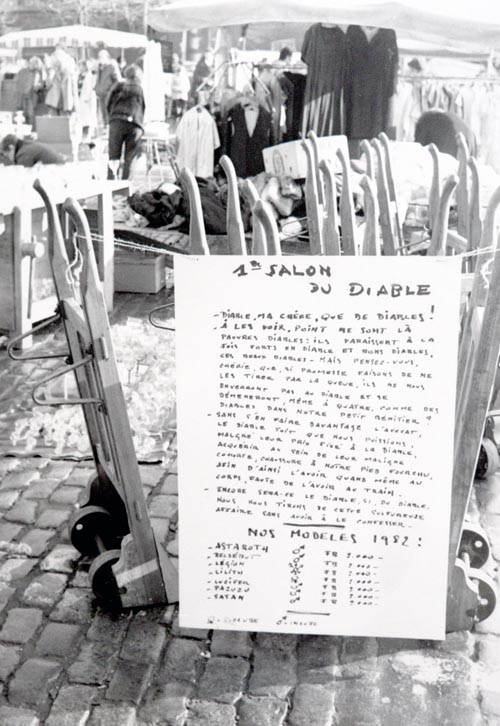 1er SALON
DU DIABLE
- DIABLE, MA CHÈRE, QUE DE DIABLES !
À LES VOIR, POINT NE SONT LÀ
PAUVRES DIABLES : ILS PARAISSENT À LA
FOIS FORTS EN DIABLE ET BONS DIABLES,
CES BEAUX DIABLES - MAIS PENSEZ-VOUS,
CHÉRIE, QUE, SI PROMESSE FAISONS DE NE
LES TIRER PAR LA QUEUE, ILS NE NOUS
ENVERRONT PAS AU DIABLE ET SE
DÉMÈNERONT, MÊME À QUATRE, COMME DES
DIABLES DANS NOTRE PETIT BÉNITIER ?
- SANS S'EN FAIRE DAVANTAGE L'AVOCAT,
LE DIABLE SOIT QUE NOUS PUISSIONS,
MALGRÉ LEUR PRIX FIXÉ À LA DIABLE,
ACQUÉRIR AU SEIN DE LEUR MALIGNE
COHORTE, CHAUSSURE À NOTRE PIED FOURCHU,
AFIN D'AINSI L'AVOIR QUAND MÊME AU
CORPS, FAUTE DE L'AVOIR AU TRAIN.
- ENCORE SERA-CE LE DIABLE, SI, DU DIABLE,
NOUS NOUS TIRONS DE CETTE SULFUREUSE
AFFAIRE SANS AVOIR À LE CONFESSER.
NOS MODELES 1982 !
- ASTAROTH FB 2.000 -
- BELZEBUT FB 2.000 -
- LÉGION FB 2.000 -
- LILITH FB 2.000 -
- LUCIFER FB 2.000 -
- PAZUZU FB 2.000 -
- SATAN FB 2.000 -
= SUCCUBE = INCUBE